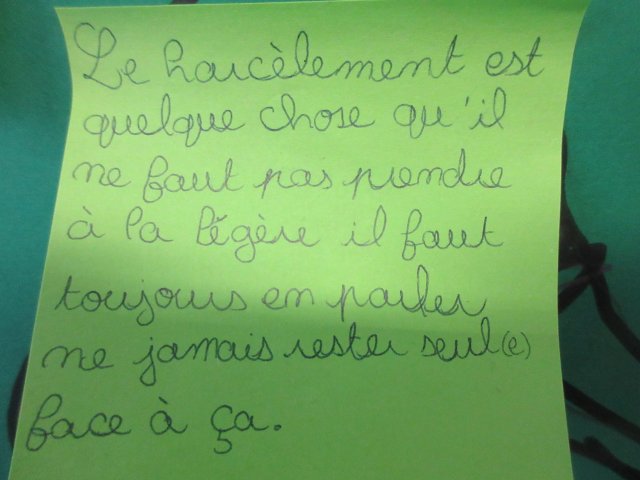 Le harcèlement est
quelque chose qu'il
ne faut pas prendre
à la légère il faut
toujours en parler
ne jamais rester seul(e)
face à ça.